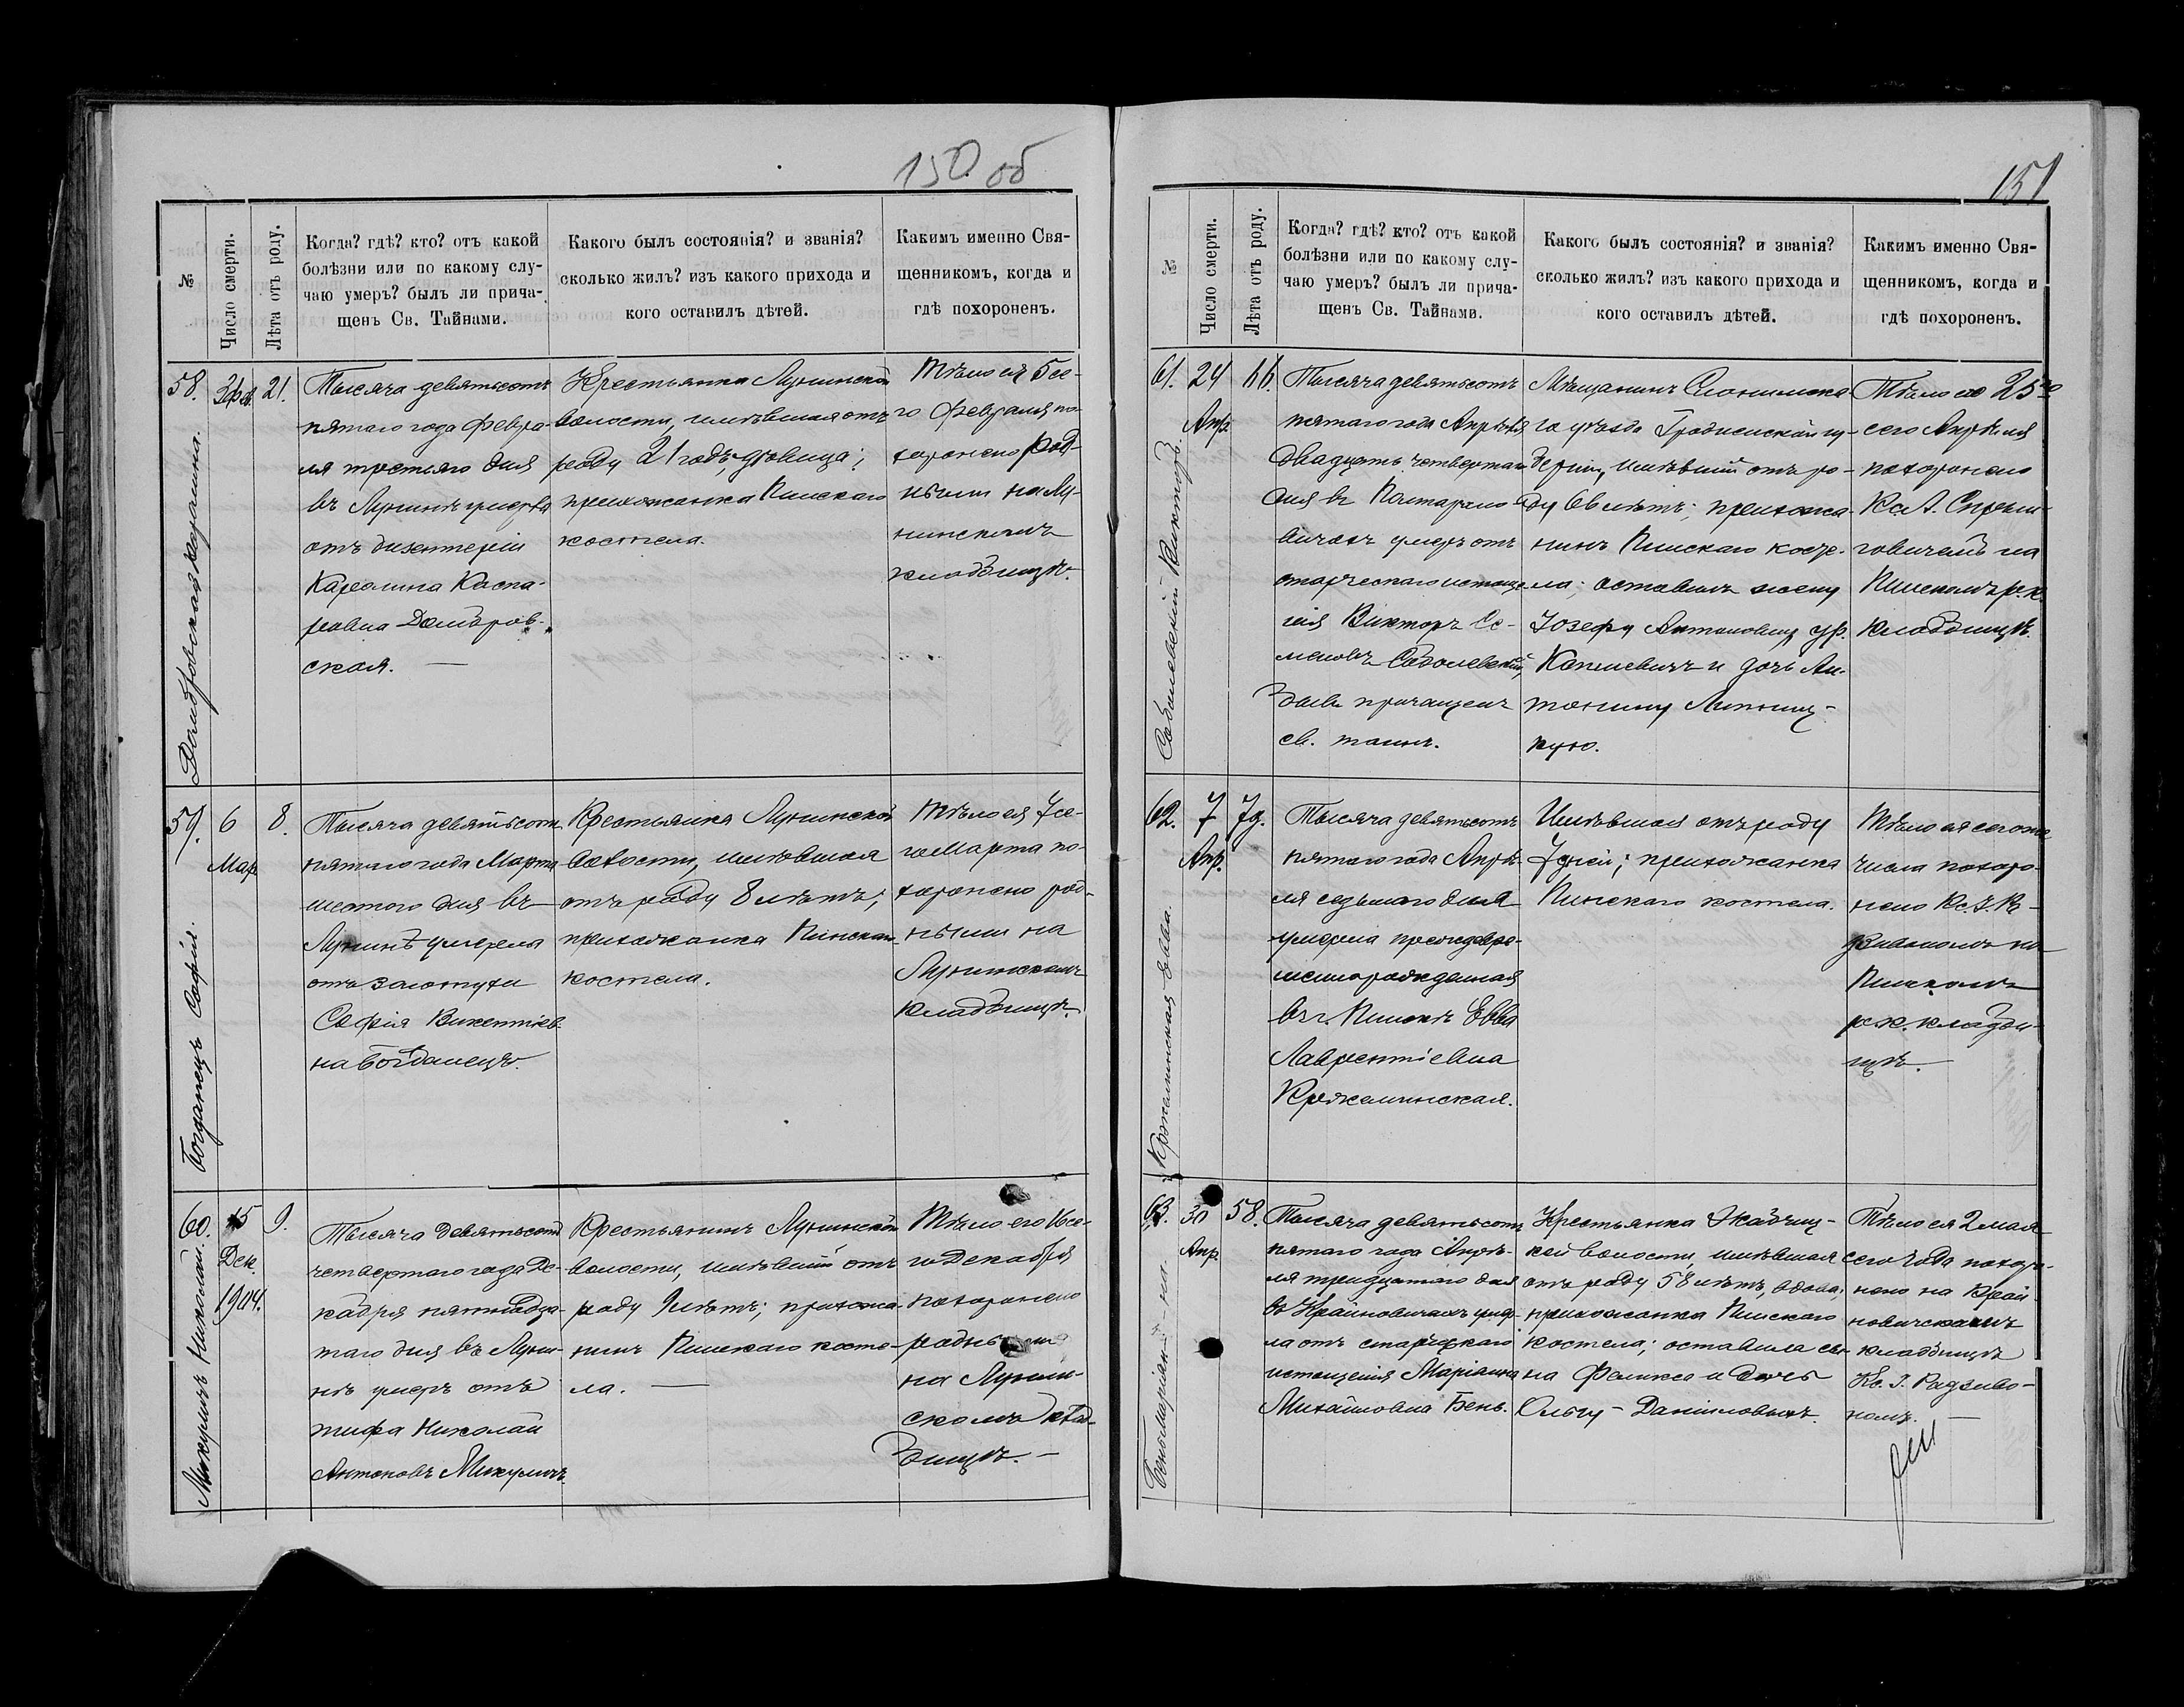 150 об
№
Число смерти.
Лѣта отъ роду.
Когда? гдѣ? кто? отъ какой
болѣзни или по какому слу-
чаю умеръ? былъ ли прича-
щенъ Св. Тайнами.
Какого былъ состоянія? и званія?
сколько жилъ? изъ какого прихода и
кого оставилъ дѣтей.
Какимъ именно Свя-
щенникомъ, когда и
гдѣ похороненъ.
58.
3 фев.
21.
Домбровская Каролина.
Тысяча девятьсотъ
пятаго года Февра-
ля третьяго дня
въ Лунинѣ умерла
отъ дизентеріи
Каролина Каспа-
ровна Домбров-
ская.
Крестьянка Лунинской
волости, имѣвшая отъ
роду 21 годъ, дѣвица;
прихожанка Пинскаго
костела.
Тѣло ея 5 се-
го Февраля по-
хоронено род-
ными на Лу-
нинскомъ
кладбищѣ.
59.
6
Мар.
8.
Богданецъ Софія.
Тысяча девятьсотъ
пятаго года Марта
шестого дня въ
Лунинѣ умерла
отъ золотухи
Софія Викентіев-
на Богданецъ.
Крестьянка Лунинской
волости, имѣвшая
отъ роду 8 лѣтъ;
прихожанка Пинскаго
костела.
Тѣло ея 7 се-
го Марта по-
хоронено род-
ными на
Лунинскомъ
кладбищѣ.
60.
15
Дек.
1904.
9.
Микуличъ Николай.
Тысяча девятьсотъ
четвертаго года Де-
кабря пятнадца-
таго дня въ Луни-
нѣ умеръ отъ
тифа Николай
Антоновъ Микуличъ.
Крестьянинъ Лунинской
волости, имѣвшій отъ
роду 9 лѣтъ; прихожа-
нинъ Пинскаго косте-
ла.
Тѣло его 16 се-
го Декабря
похоронено
родными
на Лунин-
скомъ клад-
бищѣ.
151
№
Число смерти.
Лѣта отъ роду.
Когда? гдѣ? кто? отъ какой
болѣзни или по какому слу-
чаю умеръ? былъ ли прича-
щенъ Св. Тайнами.
Какого былъ состоянія? и званія?
сколько жилъ? изъ какого прихода и
кого оставилъ дѣтей.
Какимъ именно Свя-
щенникомъ, когда и
гдѣ похороненъ.
61.
24
Апр.
66.
Соболевскій Викторъ.
Тысяча девятьсотъ
пятаго года Апрѣля
двадцать четвертаго
дня въ Полтарано-
вичахъ умеръ отъ
старческаго истоще-
нія Викторъ Се-
меновъ Соболевскій,
бывъ причащенъ
св. таинъ.
Мѣщанинъ Слонимска-
го уѣзда Гродненской гу-
берніи, имѣвшій отъ ро-
ду 66 лѣтъ; прихожа-
нинъ Пинскаго косте-
ла; оставилъ жену
Іозефу Антоновну ур.
и дочь Ан-
тонину
кую.
Тѣло его 25го
сего Апрѣля
похоронено
Кс. А.
говичемъ на
Пинскомъ р.к.
кладбищѣ.
62.
7
Апр.
7д.
Кржеминская Евва.
Тысяча девятьсотъ
пятаго года Апрѣ-
ля седьмого дня
умерла преждевре-
менно рожденная
въ г. Пинскѣ Евва
Лаврентіевна
Кржеминская.
Имѣвшая отъ роду
7 дней; прихожанка
Пинскаго костела.
Тѣло ея сего же
числа похоро-
нено Кс. І. Ра-
дзивономъ на
Пинскомъ
р.к. кладби-
щѣ.
63.
30
Апр.
58.
Бень Маріан-
на.
Тысяча девятьсотъ
пятаго года Апрѣ-
ля тридцатаго дня
въ Крайновичахъ умер-
ла отъ старческаго
истощенія Маріанна
Михайловна Бень.
Крестьянка Жабчиц-
кой волости, имѣвшая
отъ роду 58 лѣтъ, вдова,
прихожанка Пинскаго
костела; оставила сы-
на Феликса и дочь
Ольгу – Даниловыхъ.
Тѣло ея 2 мая
сего года похоро-
нено на Край-
новичскомъ
кладбищѣ
Кс. І. Радзиво-
номъ.